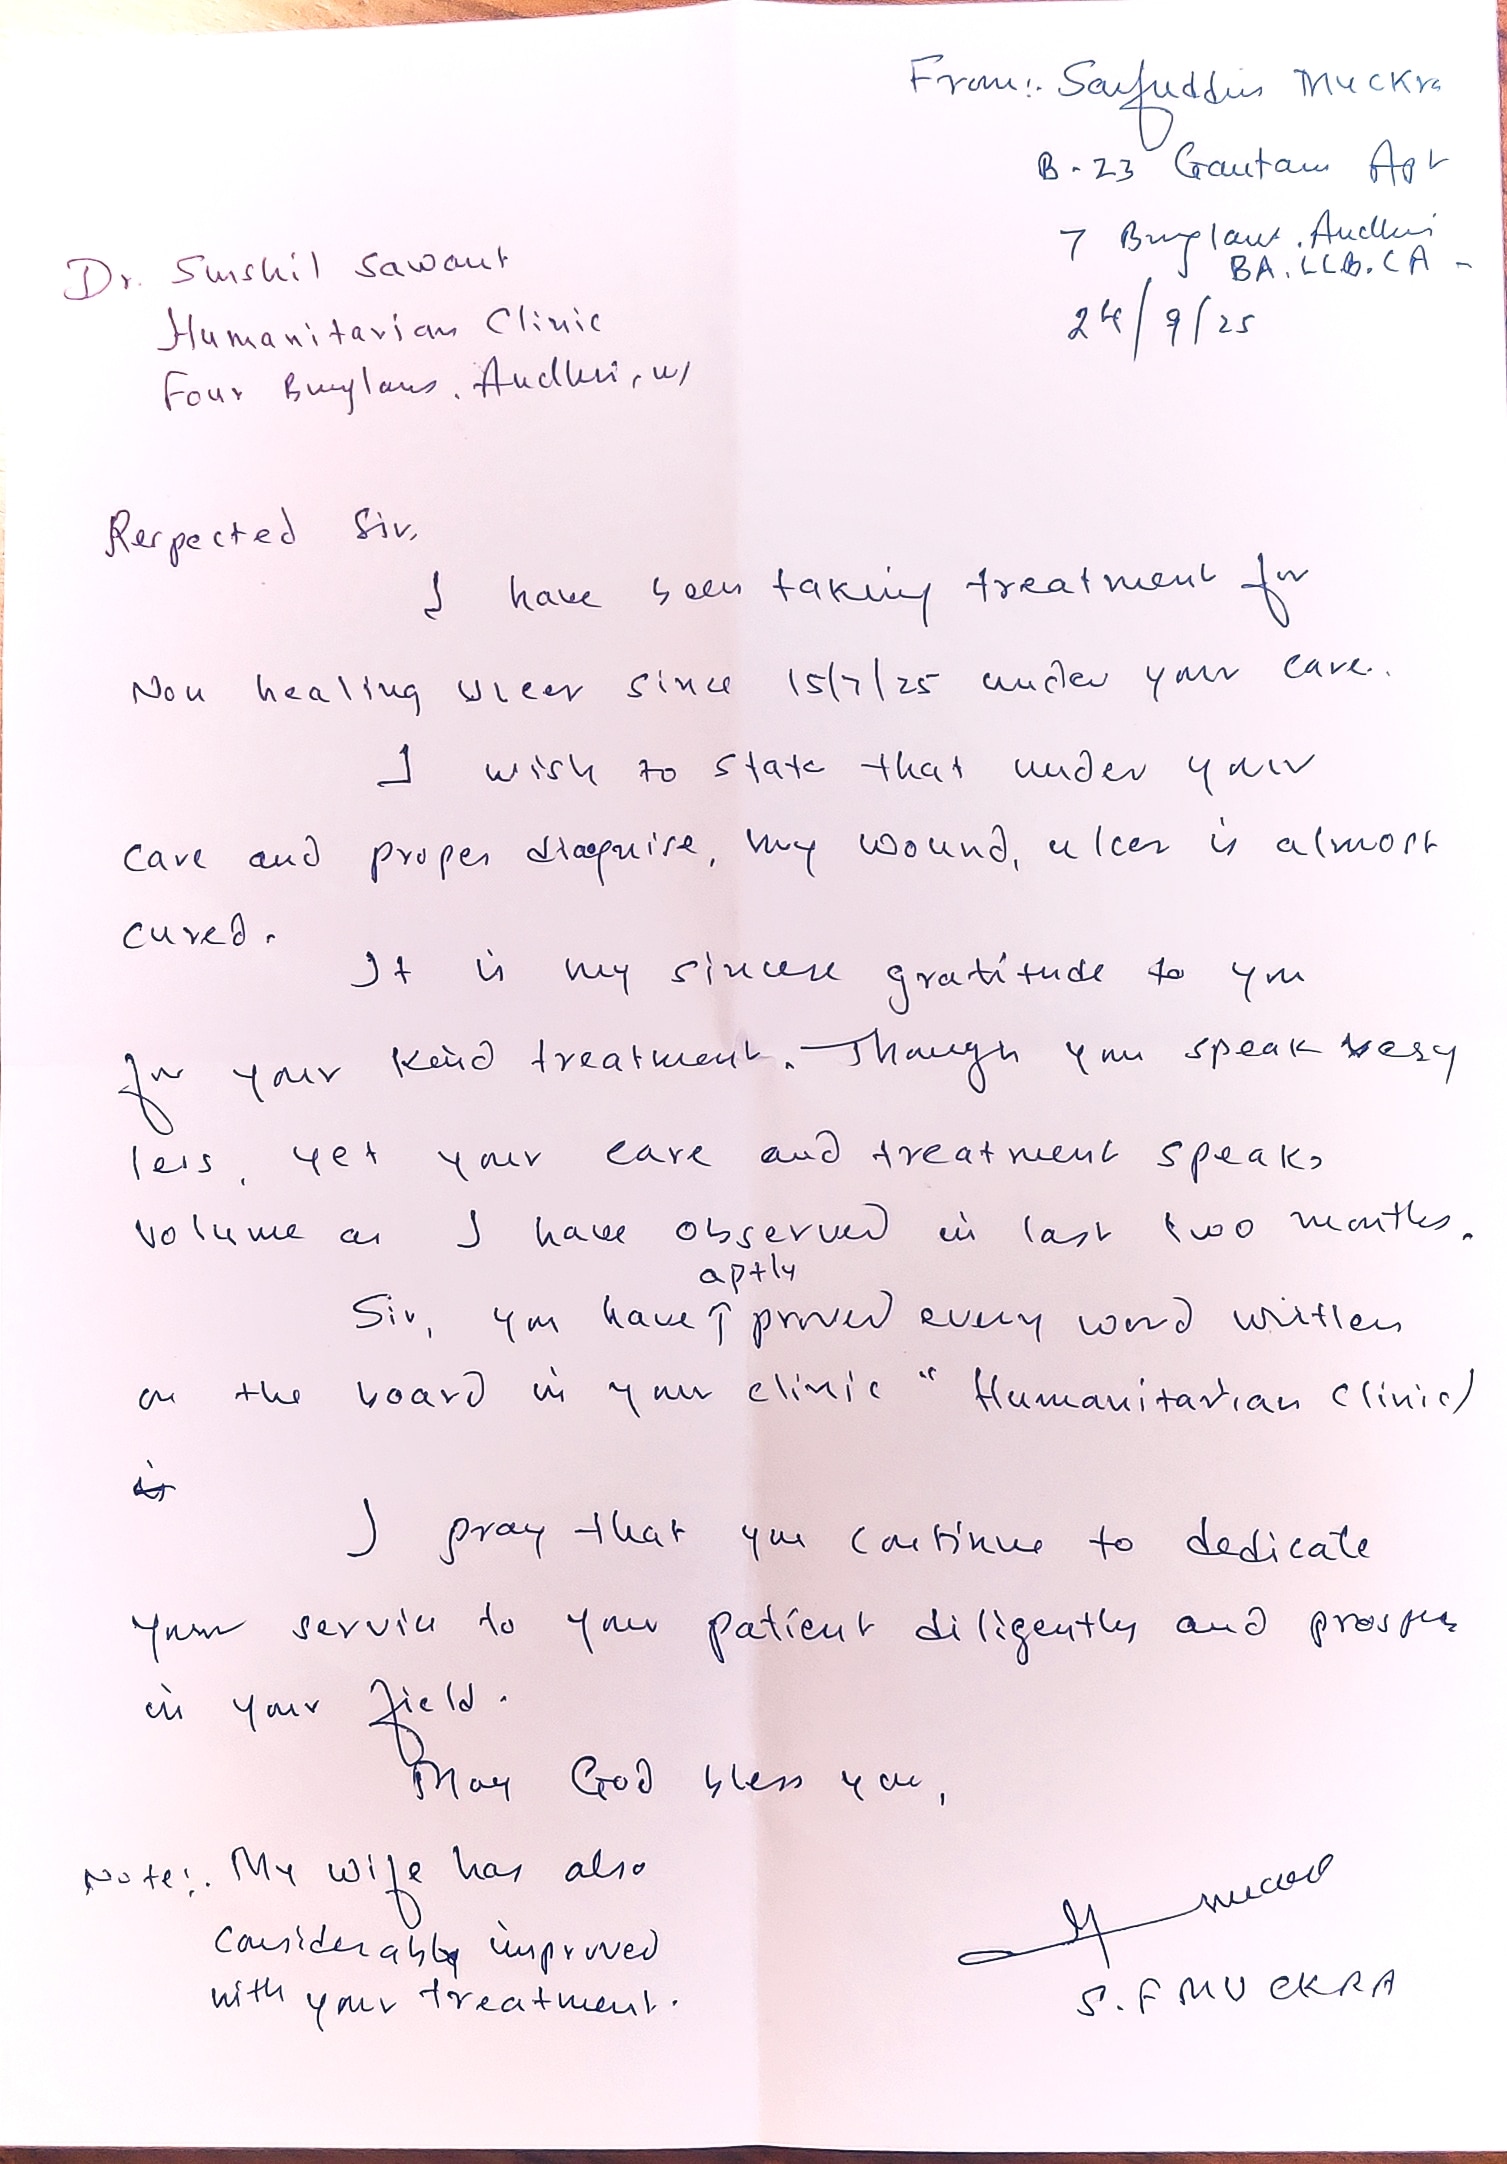 From:. Saifuddin Muckra
B-23 Gautam Apt
7 Bunglaws. Andheri
BA. LLB. CA -
24/9/25
Dr. Sushil Sawant
Humanitarian Clinic
Four Bunglaws. Andheri, w/
Respected Sir,
I have been taking treatment for
Non healing ulcer since 15/7/25 under your care.
I wish to state that under your
care and proper diagnise, my wound, ulcer is almost
cured.
It is my sincere gratitude to you
for your kind treatment. Though you speak very
less, yet your care and treatment speaks
volume as I have observed in last two months.
aptly
Sir, you have proved every word written
on the board in your clinic "Humanitarian Clinic)
is
I pray that you continue to dedicate
your service to your patient diligently and prosper
in your field.
May God bless you,
Note:. My wife has also
considerably improved
with your treatment.
S. F MUCKRA